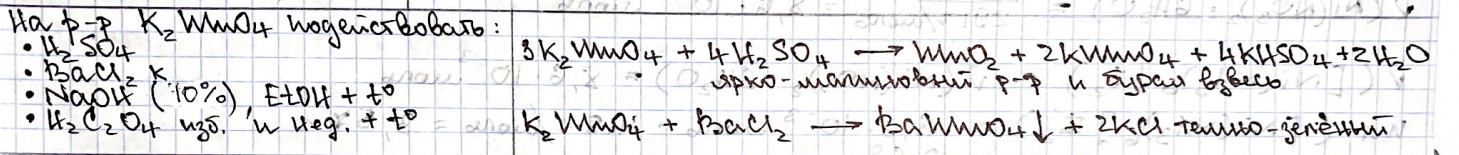 На р-р K₂MnO₄ подействовать:
• H₂SO₄
• BaCl₂ к.
• NaOH (10%), EtOH + t°
• H₂C₂O₄ изб. и нед. + t°
3K₂MnO₄ + 4H₂SO₄ → MnO₂ + 2KMnO₄ + 4KHSO₄ + 2H₂O
ярко-малиновый р-р и бурая взвесь
K₂MnO₄ + BaCl₂ → BaMnO₄↓ + 2KCl темно-зелёный